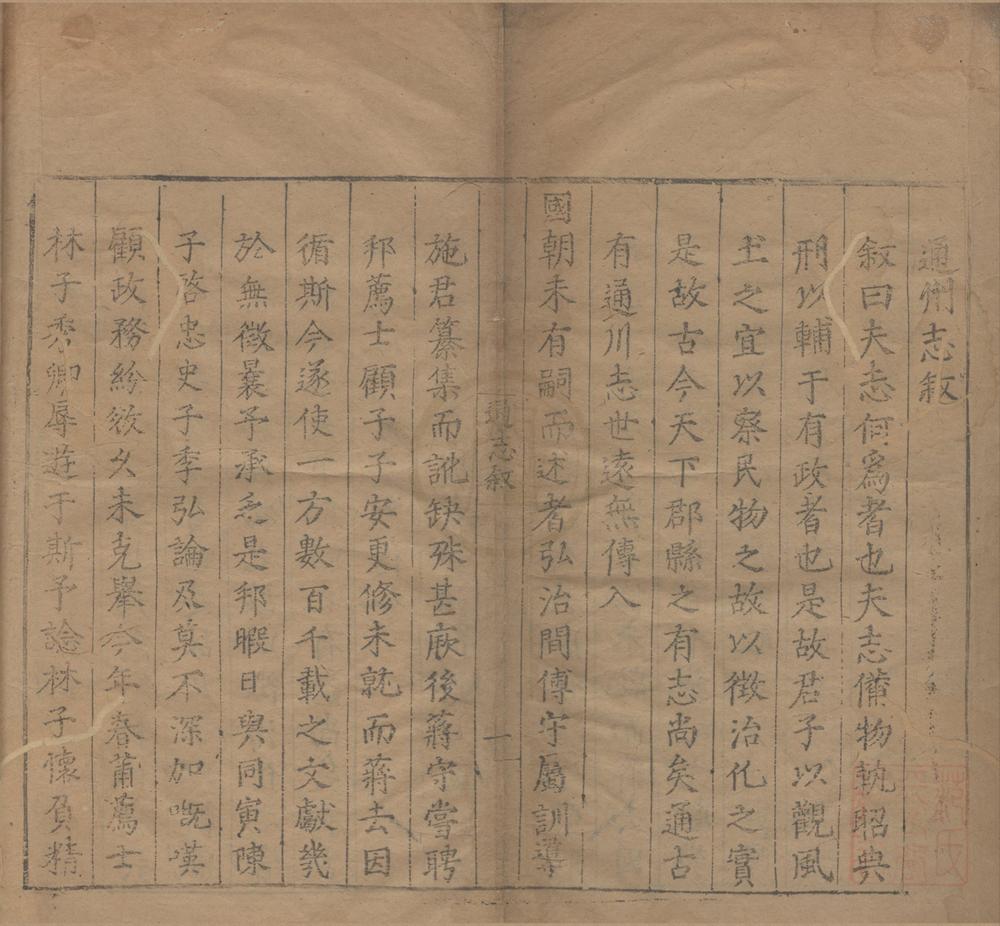 通州志敘
敘曰夫志何爲者也夫志俻物軌昭典
刑以輔于有政者也是故君子以觀風
土之宜以察民物之故以徵治化之實
是故古今天下郡縣之有志尚矣通古
有通川志世遠無傳入
國朝未有嗣而述者弘治間傅守屬訓導
通志敘
一
施君纂集而訛缺殊甚厥後蔣守嘗聘
邦薦士顧子子安更修未就而蔣去因
循斯今遂使一方數百千載之文獻幾
於無徵曩予承乏是邦暇日與同寅陳
子啓忠史子季弘論及莫不深加嘅嘆
顧政務紛紜久未克舉今年春莆薦士
林子秀卿辱遊于斯予諗林子懷負精